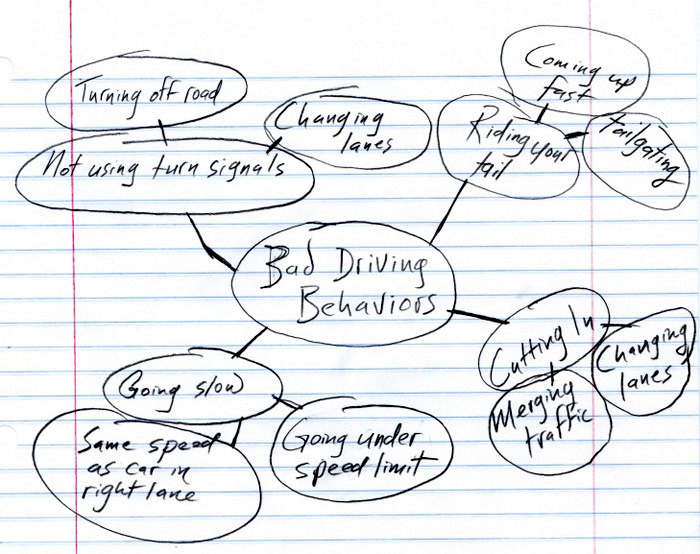 Coming up
fast
Turning off road
Changing
lanes
Riding your
tail
tailgating
Not using turn signals
Bad Driving
Behaviors
Cutting In
Changing
lanes
Going slow
Merging
traffic
Same speed
as car in
right lane
Going under
speed limit